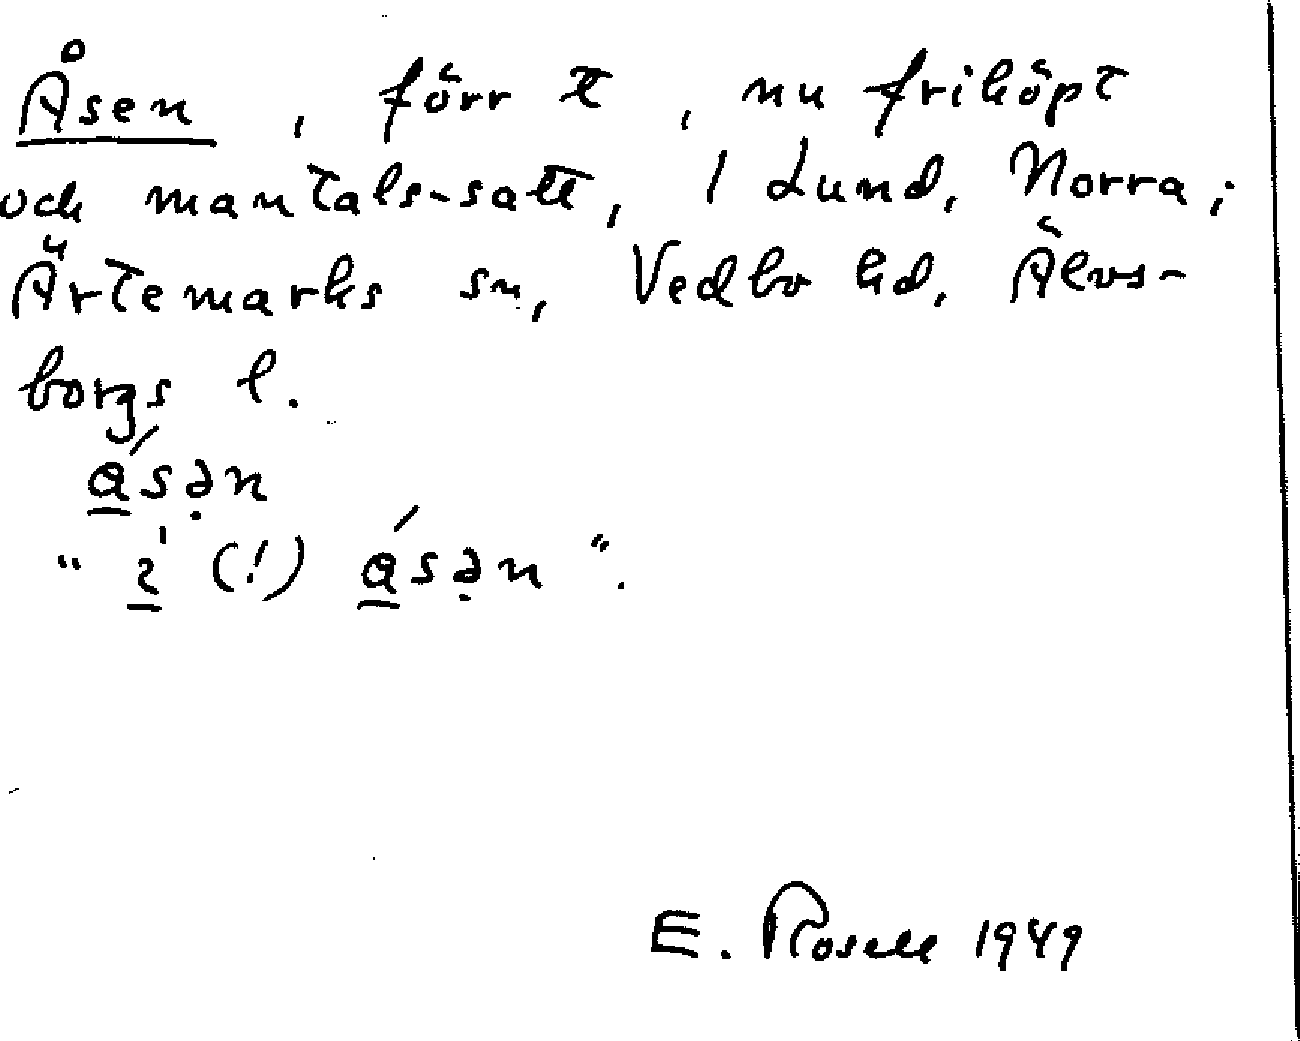 Åsen, förr tt, nu friköpt
och mantals-satt, 1 Lund, Norra;
Ärtemarks sn, Vedbo hd, Älvs-
borgs l.
ɑ́sə̣n
" ı̍ (!) ɑ́sə̣n ".
E. Rosell 1949